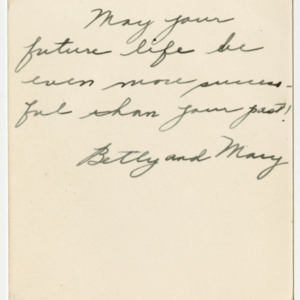 May your
future life be
even more success-
ful than your past!
Betty and Mary